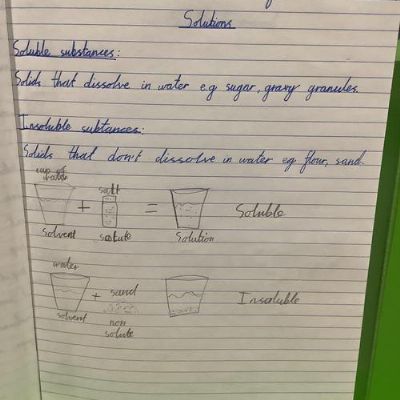 Solutions
Soluble substances:
Solids that dissolve in water e.g sugar, gravy granules.
Insoluble subtances:
Solids that don't dissolve in water eg flour, sand.
cup of water salt
+ = Soluble
solvent solute Solution
water
+ sand Insoluble
solvent non
solute